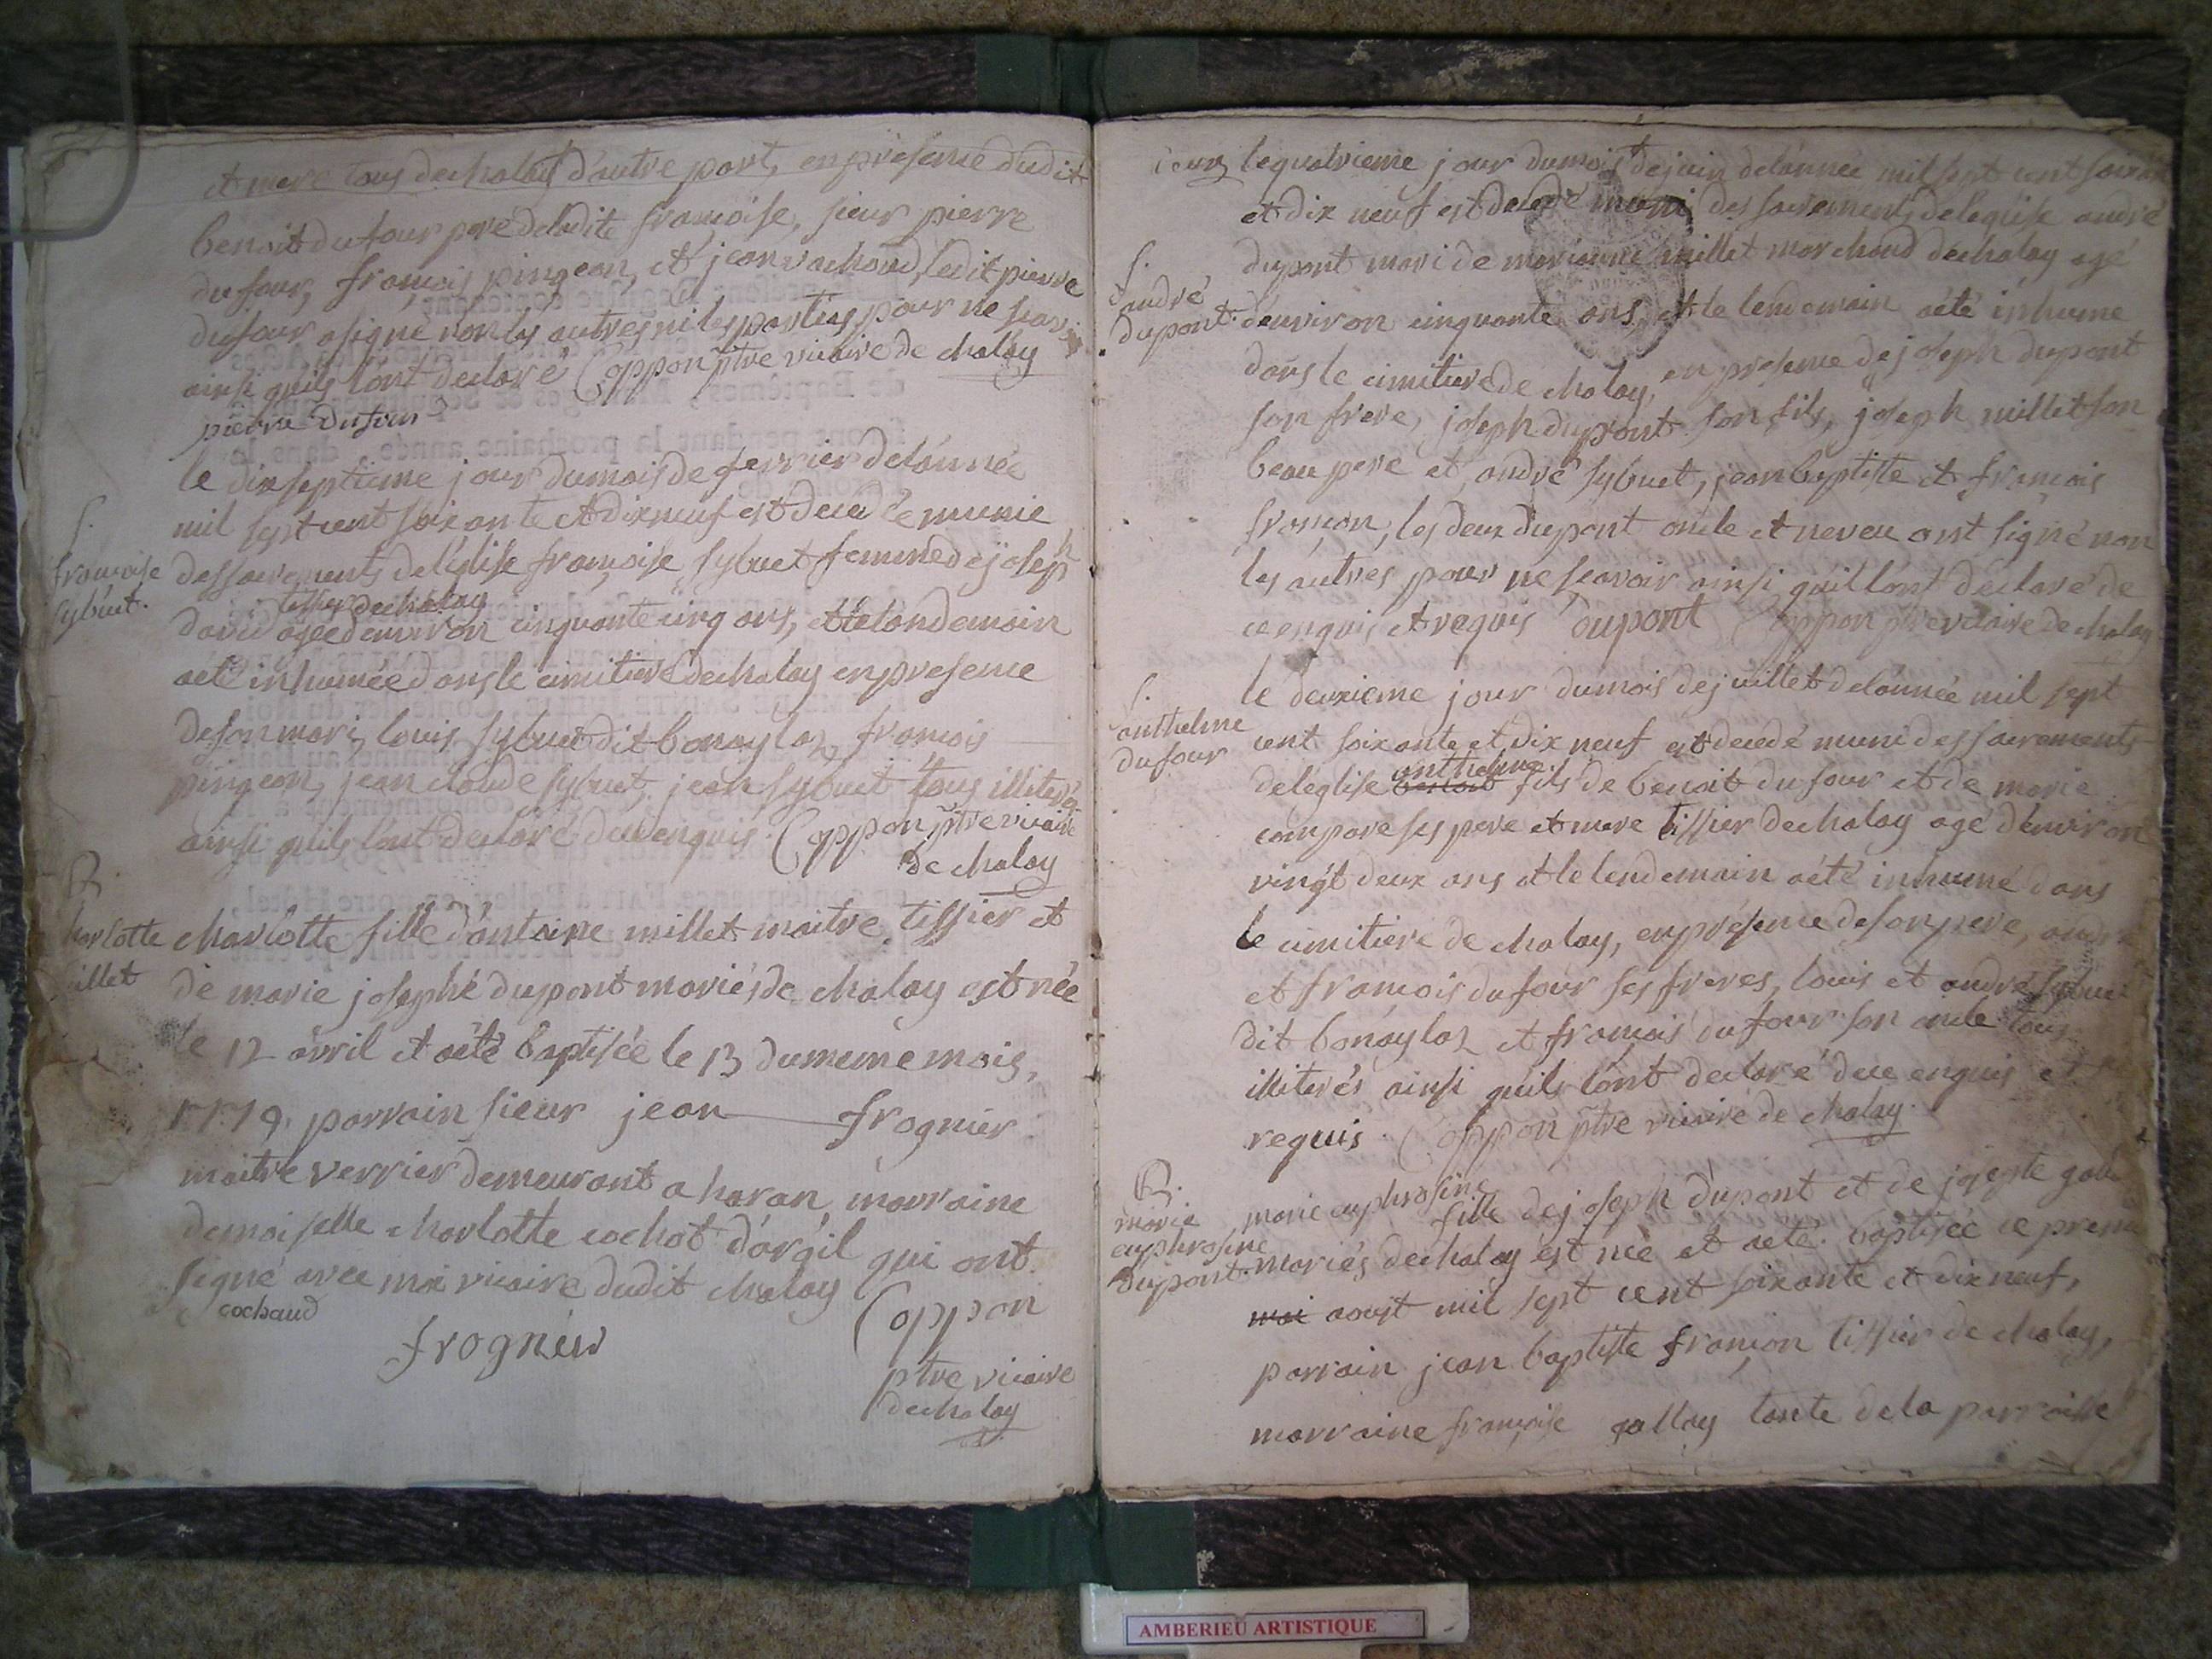 et mere tous de chalay d'autre part, en presence dudit
benoit dufour pere deladite francoise, sieur pierre
dufour, francois pingeon, et jean vachoud, ledit pierre
dufour a signé non les autres ni les parties pour ne scavoir
ainsi quils l'ont declaré Coppon ptre vicaire de chalay
pierre Dufour
le dixseptieme jour dumois de fevrier delánnée
mil sept cent soixante et dixneuf est decedée munie
S.
francoise
sybuet.
des sacrements del'église francoise sybuet femme de joseph
tissier de chalay
david agée denviron cinquante cinq ans, et le lendemain
aété inhumée dans le cimitiere dechalay en presence
de son mari, louis sybuet dit bonaylas, francois
pingeon, jean claude sybuet, jean sybuet tous illiterés
ainsi quils l'ont declaré de ce enquis Coppon ptre vicaire
de chalay
B.
harlotte
illet
charlotte fille d'antoine millet maitre tissier et
de marie josephe dupont mariés de chalay est née
le 12 avril et aété baptisée le 13 du meme mois,
1779. parrain sieur jean frognier
maitre verrier demeurant a haran, marraine
demoiselle charlotte cochot d'argil qui ont
signé avec moi vicaire dudit chalay
cochaud
frognier
Coppon
ptre vicaire
dechalay
le quatrieme jour dumois de juin delánnée mil sept cent soixante
et dix neuf est decedé muni des sacrements de l'eglise andré
S.
d'andré
dupont.
dupont mari de marianne millet marchand dechalay agé
d'environ cinquante ans, et le lendemain aété inhumé
dans le cimitiere de chalay, en presence de joseph dupont
son frere, joseph dupont son fils, joseph millet son
beau pere et andré sybuet, jean baptiste et francois
françon, les deux dupont oncle et neveu ont signé non
les autres pour ne scavoir ainsi quil l'ont declaré de
ce enquis et requis Dupont Coppon ptre vicaire de chalay
S.
anthelme
dufour
le deuxieme jour dumois de juillet delánnée mil sept
cent soixante et dix neuf est decedé muni des sacrements
anthelme
deleglise benoit fils de benoit dufour et de marie
compare ses pere et mere tissier dechalay agé d'environ
vingt deux ans et le lendemain aété inhumé dans
le cimitiere de chalay, en présence de son pere, andré
et francois dufour ses freres, louis et andré sybuet
dit bonaylas et francois dufour son oncle tous
illiterés ainsi quils l'ont declaré de ce enquis et
requis Coppon ptre vicaire de chalay.
B.
marie
euphrosine
dupont.
marie euphrosine
fille de joseph dupont et de
mariés dechalay est née et aété baptisée ce premier
moi aoust mil sept cent soixante et dixneuf,
parrain jean baptiste françon tissier de chalay,
marraine françoise gallay tante dela parroisse
AMBERIEU ARTISTIQUE